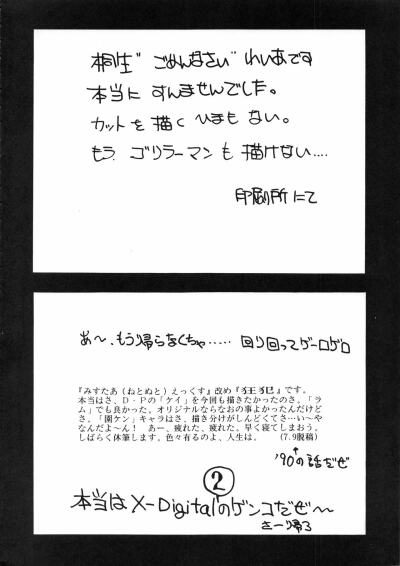 桐生"ごめんなさい"れいあです
本当に すんませんでした。
カットを描くひまもない。
もう ゴリラーマンも描けない....
印刷所にて
あ〜、もう帰らなくちゃ..... 回り回ってゲーロゲロ
『みすたあ(ねとぬと)えっくす』改め『狂犯』です。
本当はさ、D・Pの「ケイ」を今回も描きたかったのさ。「ラ
ム」でも良かった。オリジナルならなおの事よかったんだけど
さ。「園ケン」キャラはさ、描き分けがしんどくてさ…い〜や
なんだよ〜ん! あー、疲れた、疲れた。早く寝てしまおう。
しばらく休筆します。色々有るのよ、人生は。 (7.9脱稿)
'90の話だぜ
2
本当はX-Digitalのゲンコだぜ〜
さーり帰ろ